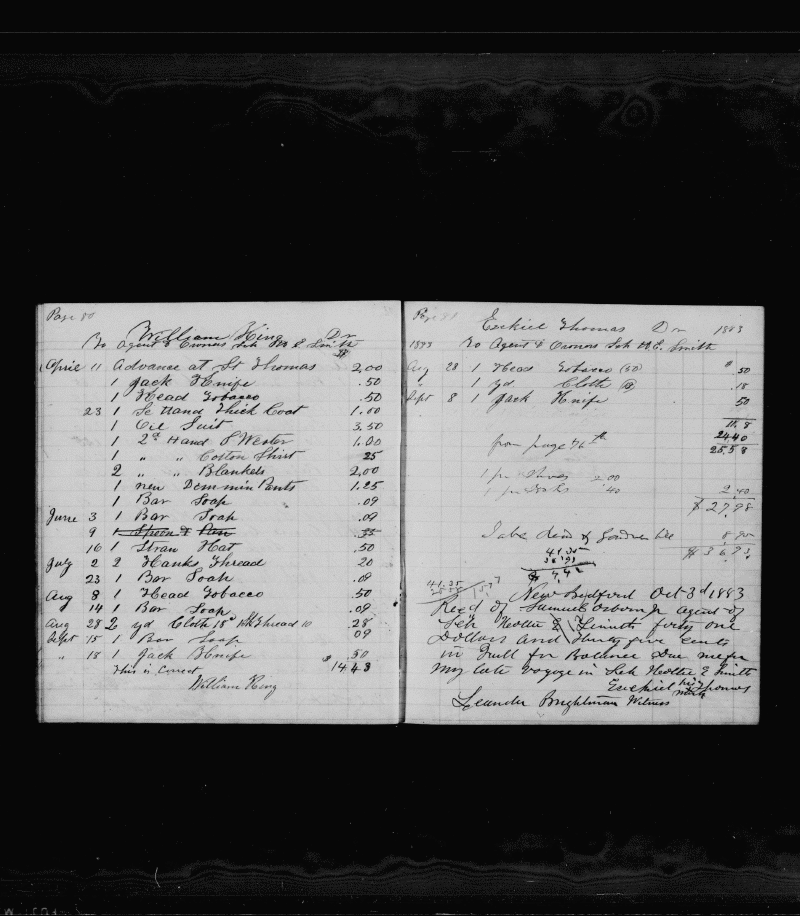 Page 80
William King Dr
To Agent & Owners Sch H E Smith
April 11 Advance at St Thomas 2.00
1 Jack Knife .50
1 Head Tobacco .50
23 1 Second Thick Coat 1.00
1 Oil Suit 3.50
1 2d Hand S Wester 1.00
1 " " Cotton Shirt 25
2 " " Blankets 2.00
1 new Demmin Pants 1.25
1 Bar Soap .09
June 3 1 Bar Soap .09
9 1 Spoon & Pan .35
16 1 Straw Hat .50
July 2 2 Hanks Thread 20
23 1 Bar Soap .09
Aug 8 1 Head Tobacco .50
14 1 Bar Soap .09
Aug 28 2 yd Cloth 18 Thread 10 .28
Sept 15 1 Bar Soap 09
" 18 1 Jack Knife .50
This is Correct $ 14.43
William King
Page 81
Ezekiel Thomas Dr 1883
1883 To Agent & Owners Sch H.E. Smith
Aug 28 1 Head Tobacco (50) " .50
" 1 yd Cloth .18
Sept 8 1 Jack Knife 50
11.8
from page 76th 24.40
25.58
1 pr Shoes 2.00
1 pr Socks .40 2.40
$ 27.98
8.95
$ 36.93
41.35
New Bedford Oct 3d 1883
Recd of Samuel Osborn Jr agent of
Sch Hettie E Smith forty one
Dollars and thirty five cents
in full for Balance Due me for
my late voyage in Sch Hettie E Smith
Ezekiel his mark Thomas
Leander Brightman Witness